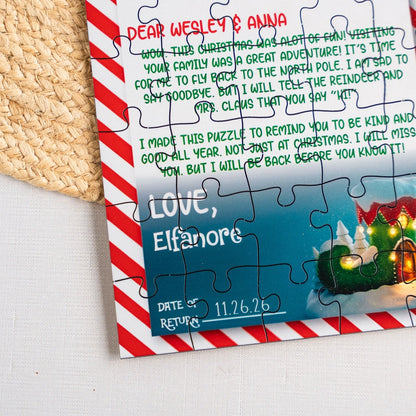 DEAR WESLEY & ANNA
WOW, THIS CHRISTMAS WAS ALOT OF FUN! VISITING
YOUR FAMILY WAS A GREAT ADVENTURE! IT'S TIME
FOR ME TO FLY BACK TO THE NORTH POLE. I AM SAD TO
SAY GOODBYE. BUT I WILL TELL THE REINDEER AND
MRS. CLAUS THAT YOU SAY "HI!"
I MADE THIS PUZZLE TO REMIND YOU TO BE KIND AND
GOOD ALL YEAR. NOT JUST AT CHRISTMAS. I WILL MISS
YOU. BUT I WILL BE BACK BEFORE YOU KNOW IT!
LOVE,
Elfanore
DATE OF
RETURN: 11.26.26